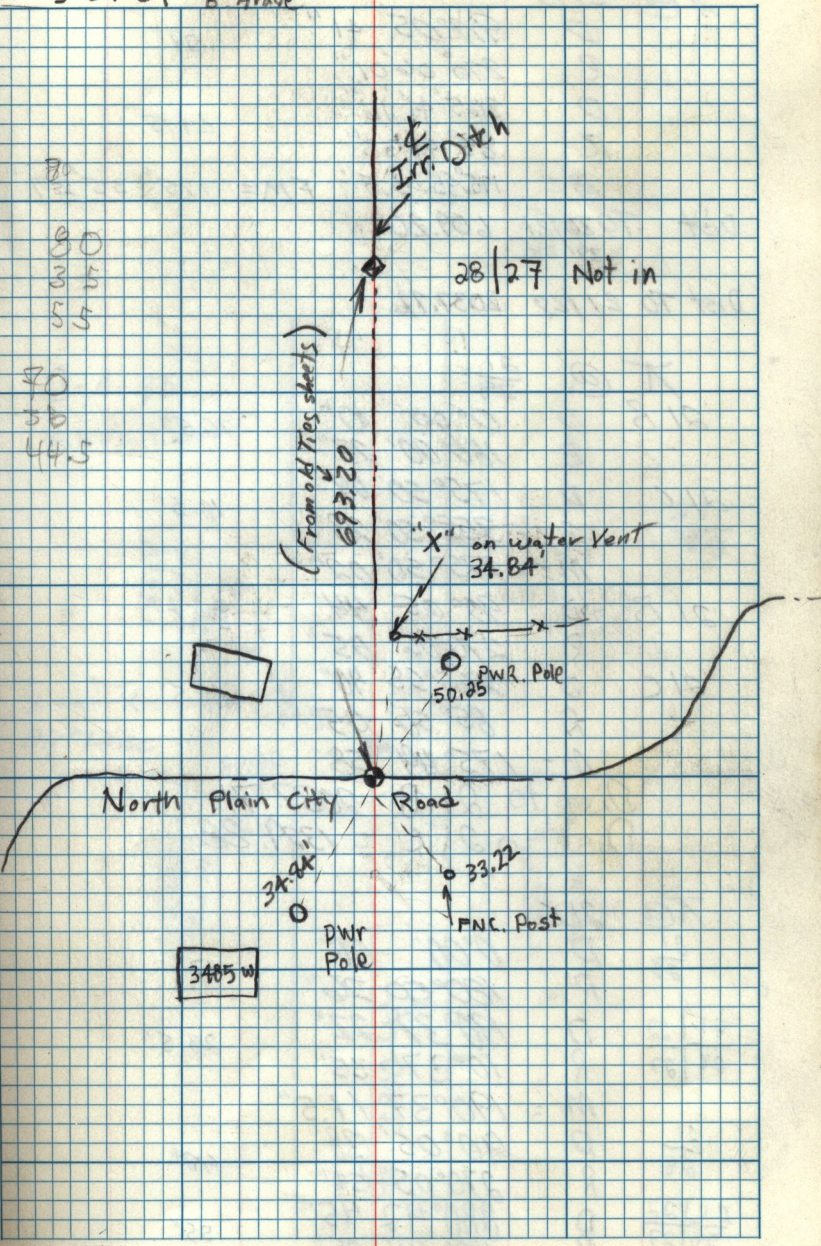 ℄
Irr. Ditch
28|27 Not in
(From old Ties sheets)
693.20
"X" on water Vent
34.84'
PWR. Pole
50.25
North Plain City Road
34.84'
33.22
FNC. Post
PWr
Pole
3485 W
80
35
55